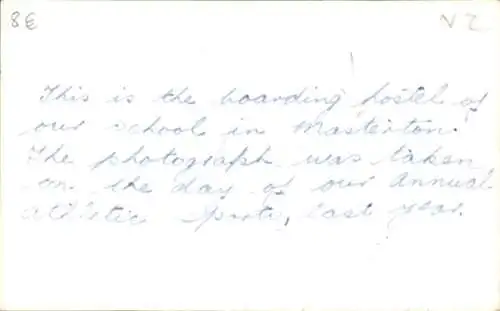 8€ NZ
This is the boarding hostel of
our school in Masterton.
The photograph was taken
on the day of our Annual
athletic sports, last year.